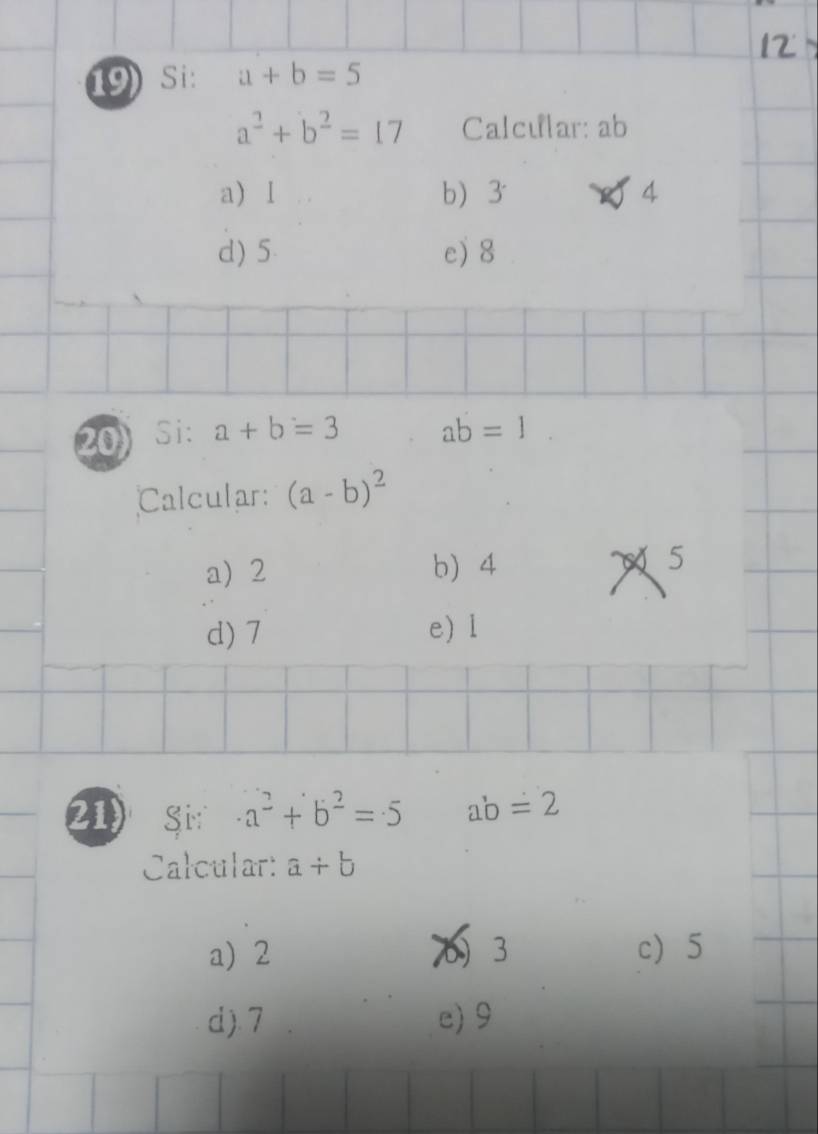 12
19) Si: a + b = 5
a² + b² = 17 Calcular: ab
a) 1 b) 3 c) 4
d) 5 e) 8
20) Si: a + b = 3 ab = 1
Calcular: (a - b)²
a) 2 b) 4 c) 5
d) 7 e) 1
21) Si: a² + b² = 5 ab = 2
Calcular: a + b
a) 2 b) 3 c) 5
d) 7 e) 9